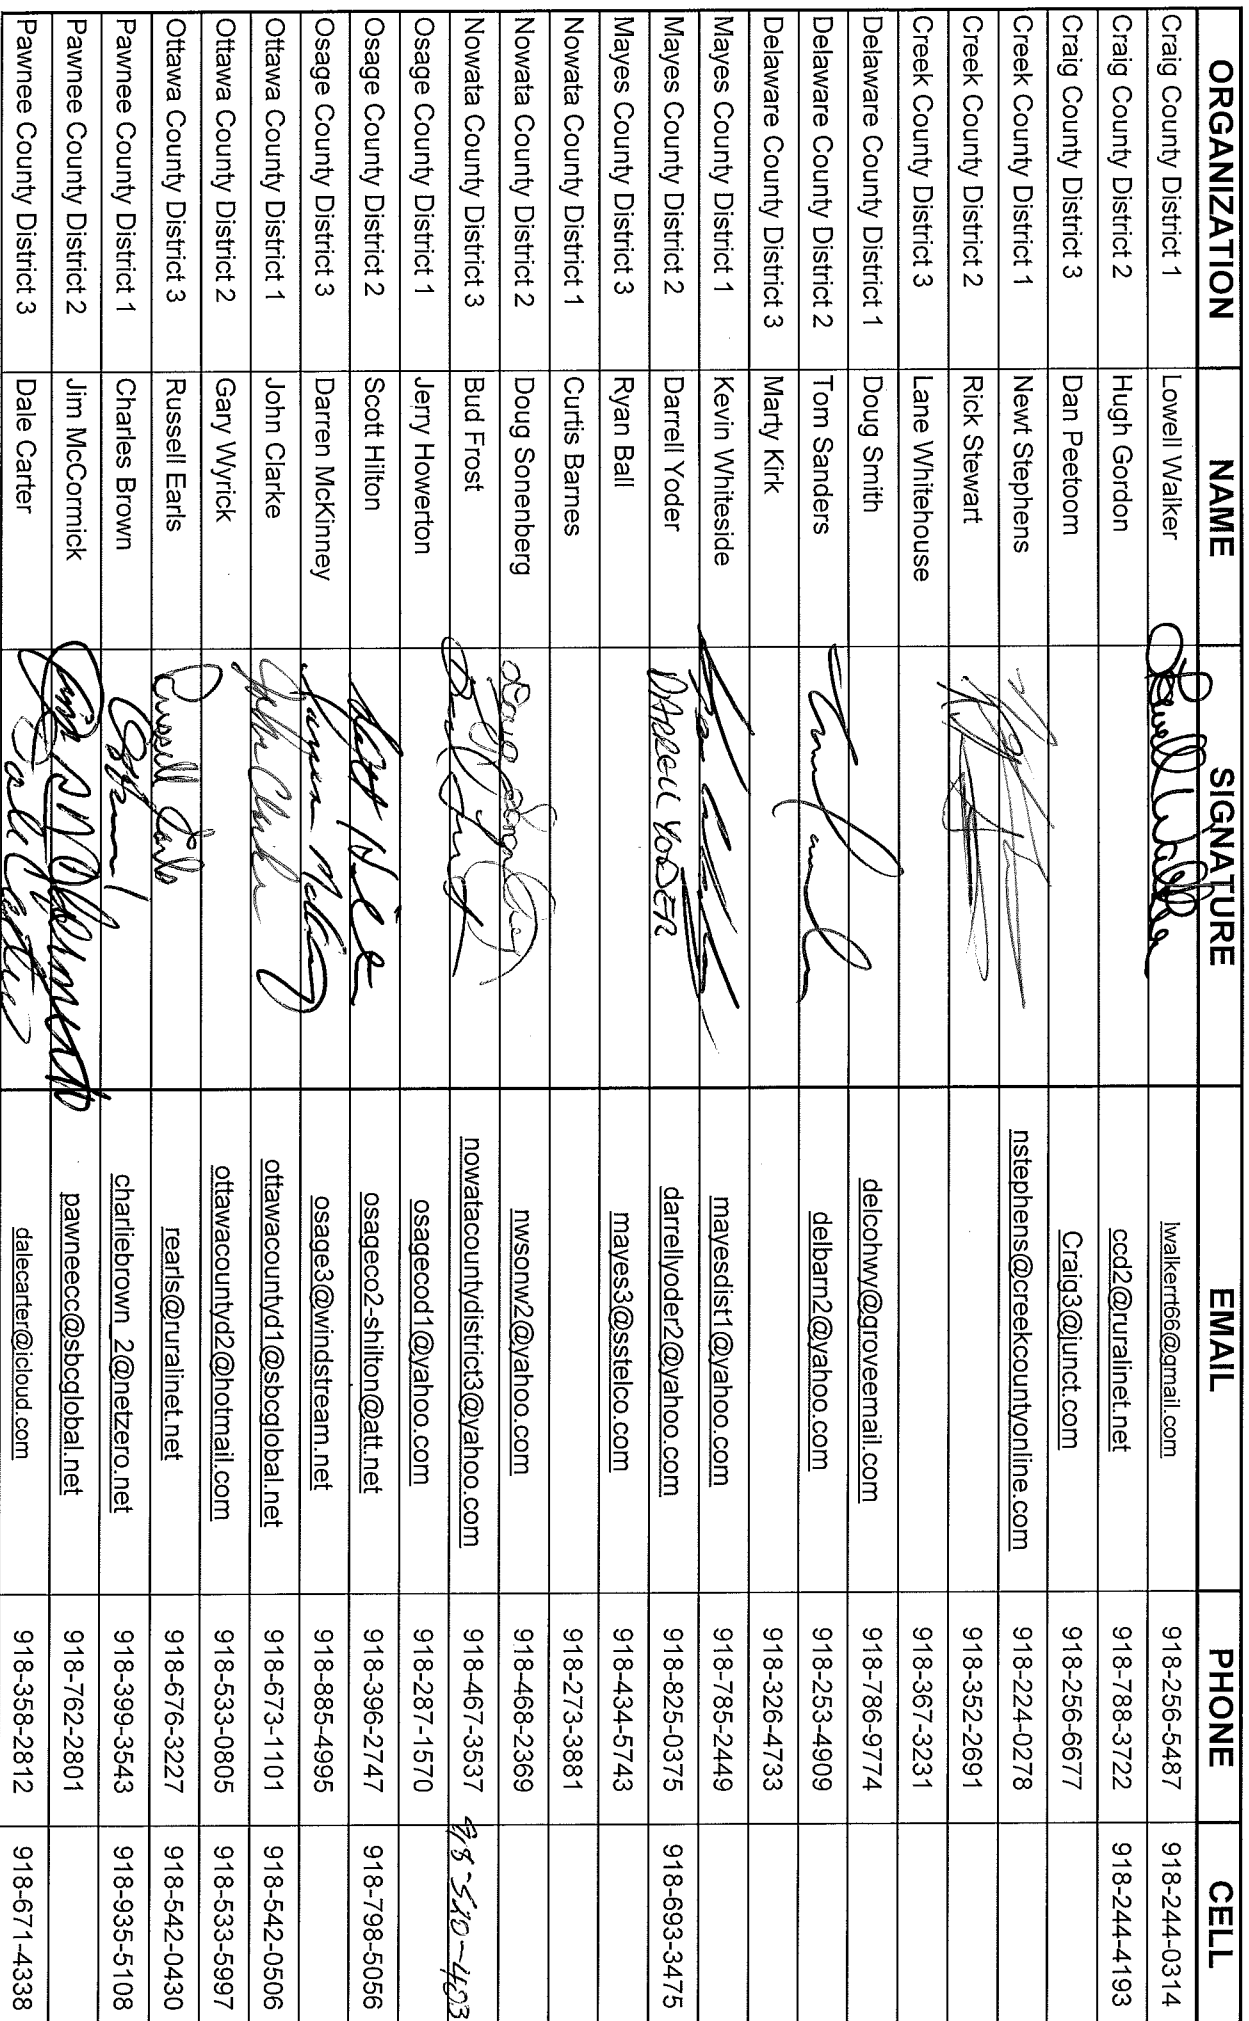 ORGANIZATION NAME SIGNATURE EMAIL PHONE CELL
Craig County District 1 Lowell Walker Lowell Walker lwalkerrt66@gmail.com 918-256-5487 918-244-0314
Craig County District 2 Hugh Gordon ccd2@ruralinet.net 918-788-3722 918-244-4193
Craig County District 3 Dan Peetoom Craig3@junct.com 918-256-6677
Creek County District 1 Newt Stephens nstephens@creekcountyonline.com 918-224-0278
Creek County District 2 Rick Stewart 918-352-2691
Creek County District 3 Lane Whitehouse 918-367-3231
Delaware County District 1 Doug Smith delcohwy@groveemail.com 918-786-9774
Delaware County District 2 Tom Sanders delbarn2@yahoo.com 918-253-4909
Delaware County District 3 Marty Kirk 918-326-4733
Mayes County District 1 Kevin Whiteside mayesdist1@yahoo.com 918-785-2449
Mayes County District 2 Darrell Yoder DARRELL YODER darrellyoder2@yahoo.com 918-825-0375 918-693-3475
Mayes County District 3 Ryan Ball mayes3@sstelco.com 918-434-5743
Nowata County District 1 Curtis Barnes 918-273-3881
Nowata County District 2 Doug Sonenberg Doug Sonenberg nwsonw2@yahoo.com 918-468-2369
Nowata County District 3 Bud Frost Bud Frost nowatacountydistrict3@yahoo.com 918-467-3537 918-510-403
Osage County District 1 Jerry Howerton osagecod1@yahoo.com 918-287-1570
Osage County District 2 Scott Hilton Scott Hilton osageco2-shilton@att.net 918-396-2747 918-798-5056
Osage County District 3 Darren McKinney Darren McKinney osage3@windstream.net 918-885-4995
Ottawa County District 1 John Clarke John Clarke ottawacountyd1@sbcglobal.net 918-673-1101 918-542-0506
Ottawa County District 2 Gary Wyrick ottawacountyd2@hotmail.com 918-533-0805 918-533-5997
Ottawa County District 3 Russell Earls Russell Earls rearls@ruralinet.net 918-676-3227 918-542-0430
Pawnee County District 1 Charles Brown charliebrown_2@netzero.net 918-399-3543 918-935-5108
Pawnee County District 2 Jim McCormick Jim McCormick pawneecc@sbcglobal.net 918-762-2801
Pawnee County District 3 Dale Carter Dale Carter dalecarter@icloud.com 918-358-2812 918-671-4338